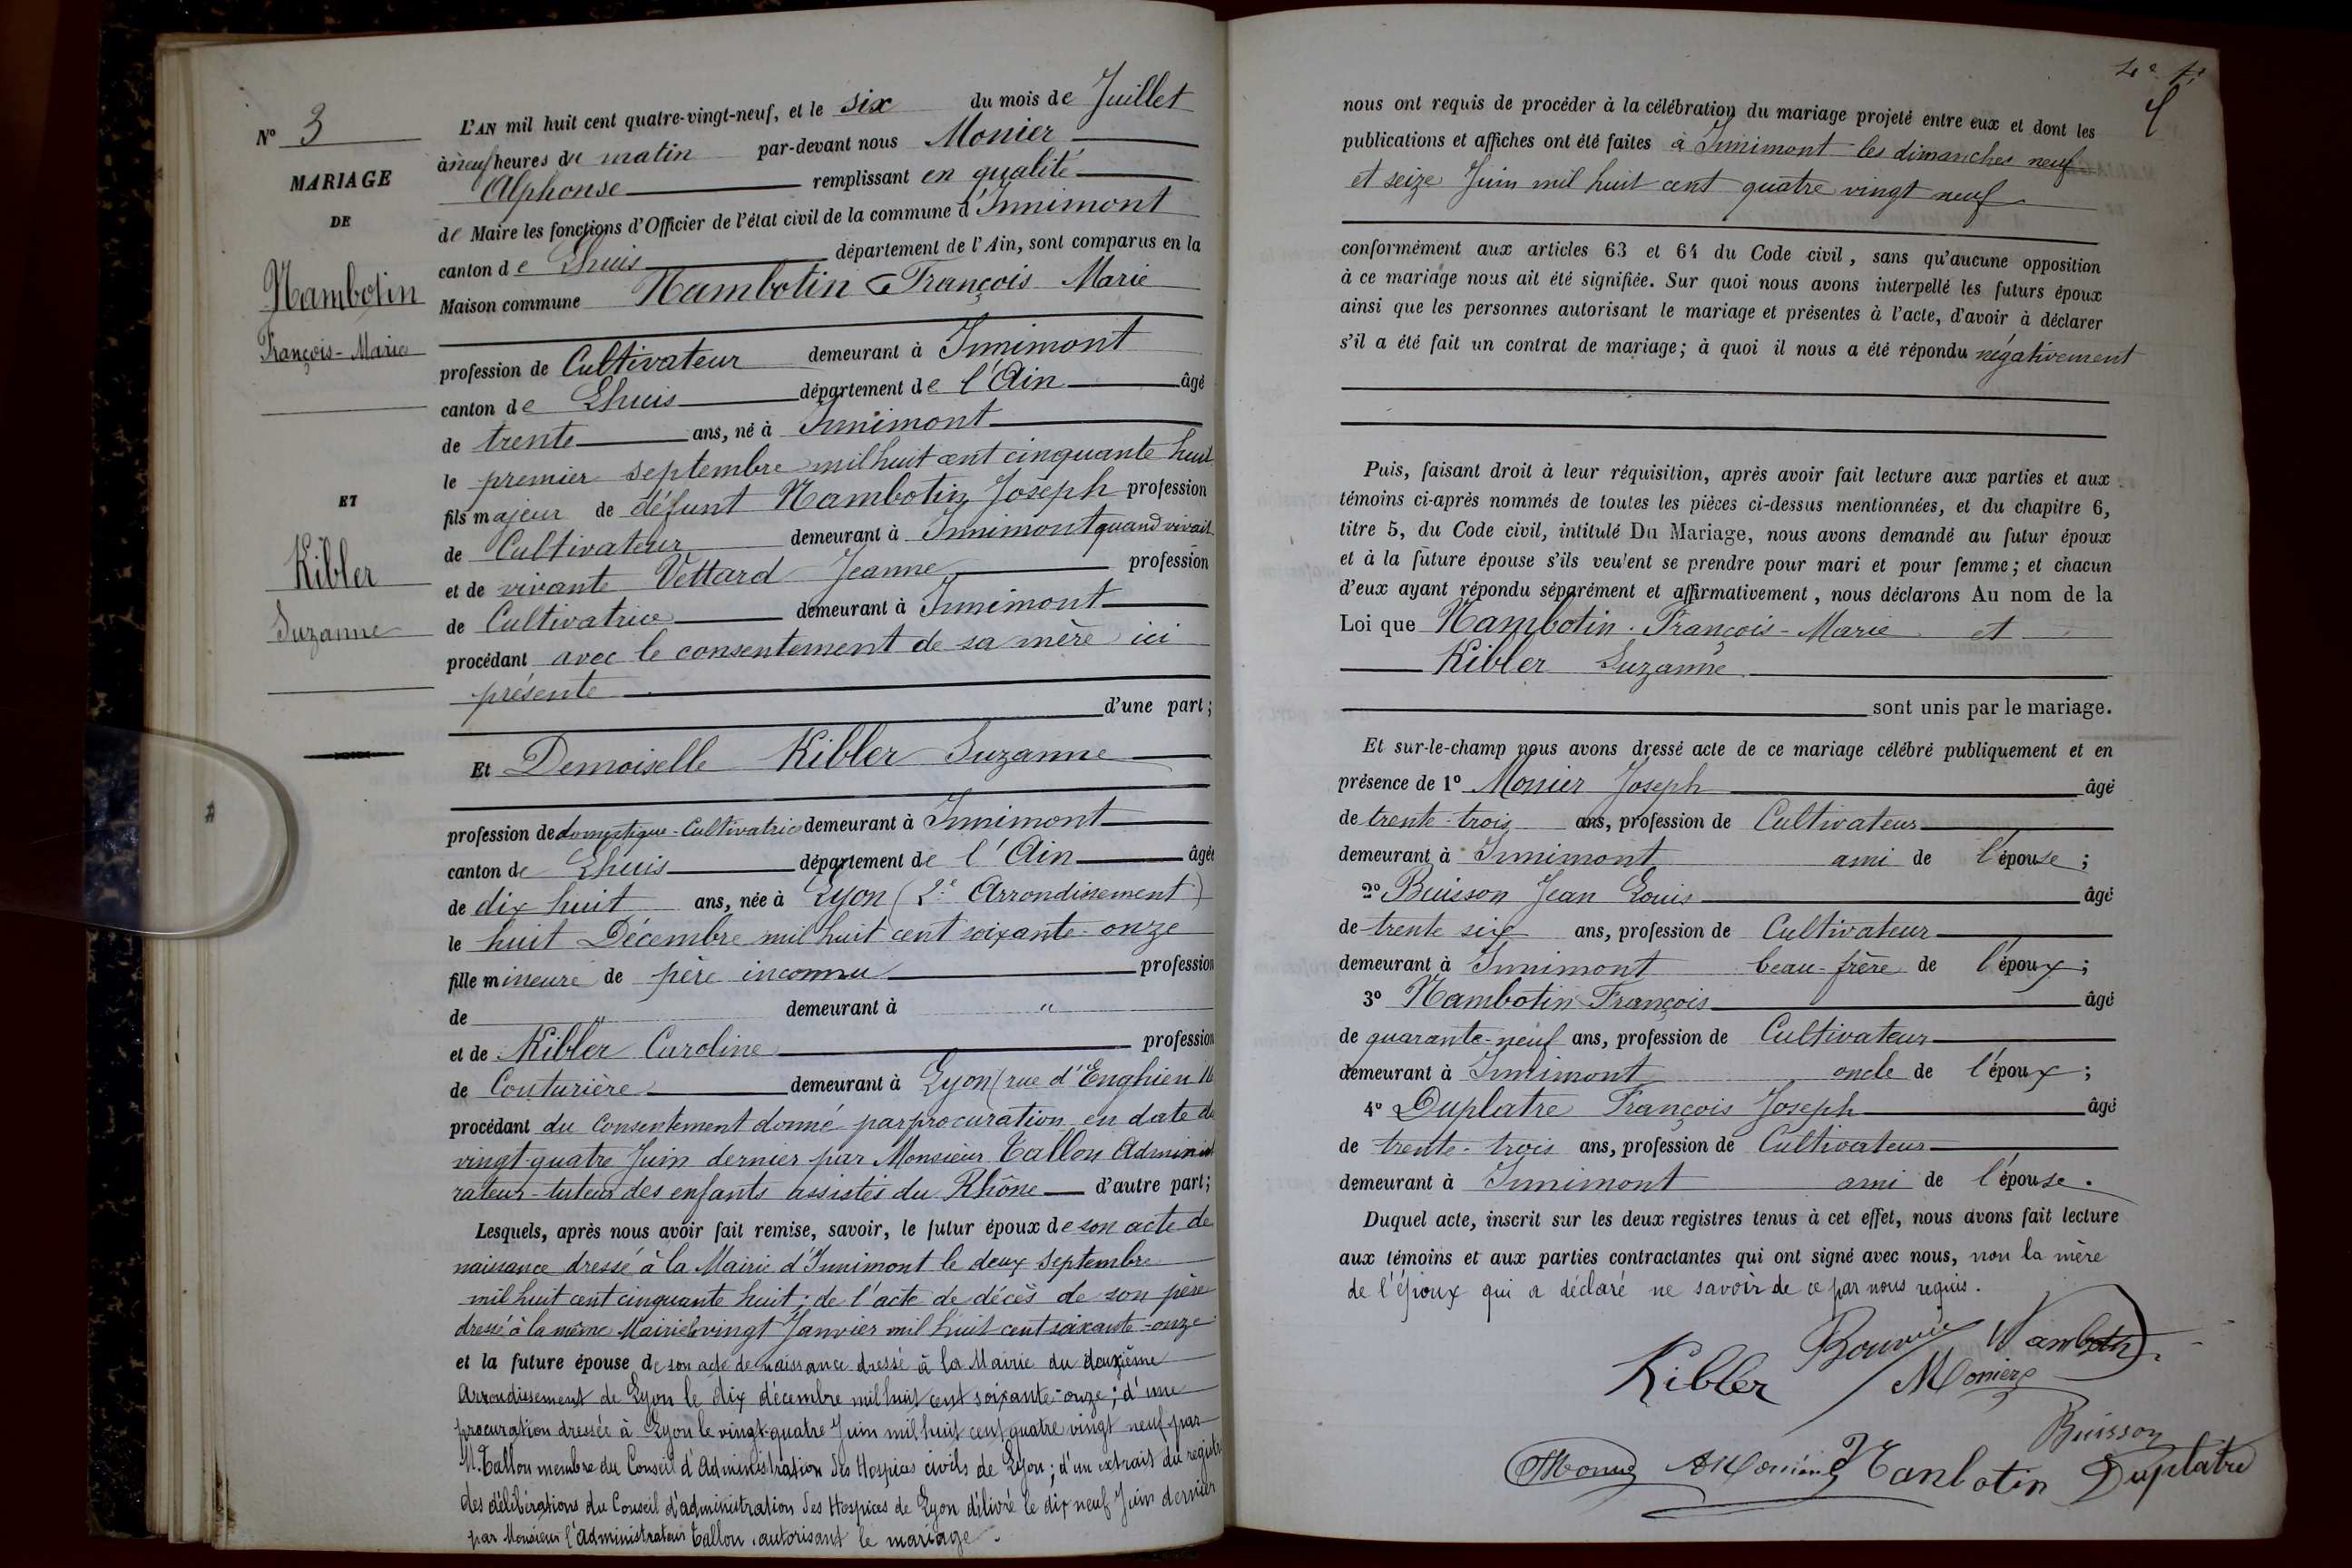 N° 3
MARIAGE
DE
Nambotin
François-Marie
ET
Kibler
Suzanne
L'AN mil huit cent quatre-vingt-neuf, et le six du mois de Juillet
à neuf heures du matin par-devant nous Monier
Alphonse remplissant en qualité
de Maire les fonctions d'Officier de l'état civil de la commune d'Innimont
canton de Lhuis département de l'Ain, sont comparus en la
Maison commune Nambotin François Marie
profession de Cultivateur demeurant à Innimont
canton de Lhuis département de l'Ain âgé
de trente ans, né à Innimont
le premier septembre mil huit cent cinquante huit
fils majeur de défunt Nambotin Joseph profession
de Cultivateur demeurant à Innimont quand vivait
et de vivante Vettard Jeanne profession
de Cultivatrice demeurant à Innimont
procédant avec le consentement de sa mère ici
présente
d'une part;
Et Demoiselle Kibler Suzanne
profession de domestique-Cultivatrice demeurant à Innimont
canton de Lhuis département de l'Ain âgée
de dix huit ans, née à Lyon (2e Arrondissement)
le huit Décembre mil huit cent soixante-onze
fille mineure de père inconnu profession
de demeurant à "
et de Kibler Caroline profession
de Couturière demeurant à Lyon (rue d'Enghien 16
procédant du consentement donné par procuration en date du
vingt-quatre Juin dernier par Monsieur Tallon Administ
rateur-tuteur des enfants assistés du Rhône d'autre part;
Lesquels, après nous avoir fait remise, savoir, le futur époux de son acte de
naissance dressé à la Mairie d'Innimont le deux septembre
mil huit cent cinquante huit; de l'acte de décès de son père
dressé à la même Mairie le vingt Janvier mil huit cent soixante-onze
et la future épouse de son acte de naissance dressé à la Mairie du deuxième
Arrondissement de Lyon le dix décembre mil huit cent soixante-onze; d'une
procuration dressée à Lyon le vingt-quatre Juin mil huit cent quatre vingt neuf par
M. Tallon membre du Conseil d'Administration des Hospices civils de Lyon; d'un extrait du registre
des délibérations du Conseil d'administration des Hospices de Lyon délivré le dix neuf Juin dernier
par Monsieur l'Administrateur Tallon, autorisant le mariage.
nous ont requis de procéder à la célébration du mariage projeté entre eux et dont les
publications et affiches ont été faites à Innimont les dimanches neuf
et seize Juin mil huit cent quatre vingt neuf
conformément aux articles 63 et 64 du Code civil, sans qu'aucune opposition
à ce mariage nous ait été signifiée. Sur quoi nous avons interpellé les futurs époux
ainsi que les personnes autorisant le mariage et présentes à l'acte, d'avoir à déclarer
s'il a été fait un contrat de mariage; à quoi il nous a été répondu négativement
Puis, faisant droit à leur réquisition, après avoir fait lecture aux parties et aux
témoins ci-après nommés de toutes les pièces ci-dessus mentionnées, et du chapitre 6,
titre 5, du Code civil, intitulé Du Mariage, nous avons demandé au futur époux
et à la future épouse s'ils veulent se prendre pour mari et pour femme; et chacun
d'eux ayant répondu séparément et affirmativement, nous déclarons Au nom de la
Loi que Nambotin François-Marie et
Kibler Suzanne
sont unis par le mariage.
Et sur-le-champ nous avons dressé acte de ce mariage célébré publiquement et en
présence de 1° Monier Joseph âgé
de trente-trois ans, profession de Cultivateur
demeurant à Innimont ami de l'épouse;
2° Buisson Jean Louis âgé
de trente six ans, profession de Cultivateur
demeurant à Innimont beau-frère de l'époux;
3° Nambotin François âgé
de quarante-neuf ans, profession de Cultivateur
demeurant à Innimont oncle de l'époux;
4° Duplatre François Joseph âgé
de trente-trois ans, profession de Cultivateur
demeurant à Innimont ami de l'épouse.
Duquel acte, inscrit sur les deux registres tenus à cet effet, nous avons fait lecture
aux témoins et aux parties contractantes qui ont signé avec nous, non la mère
de l'époux qui a déclaré ne savoir de ce par nous requis.
Nambotin
Kibler Monier
Buisson
Nanbotin Duplatre